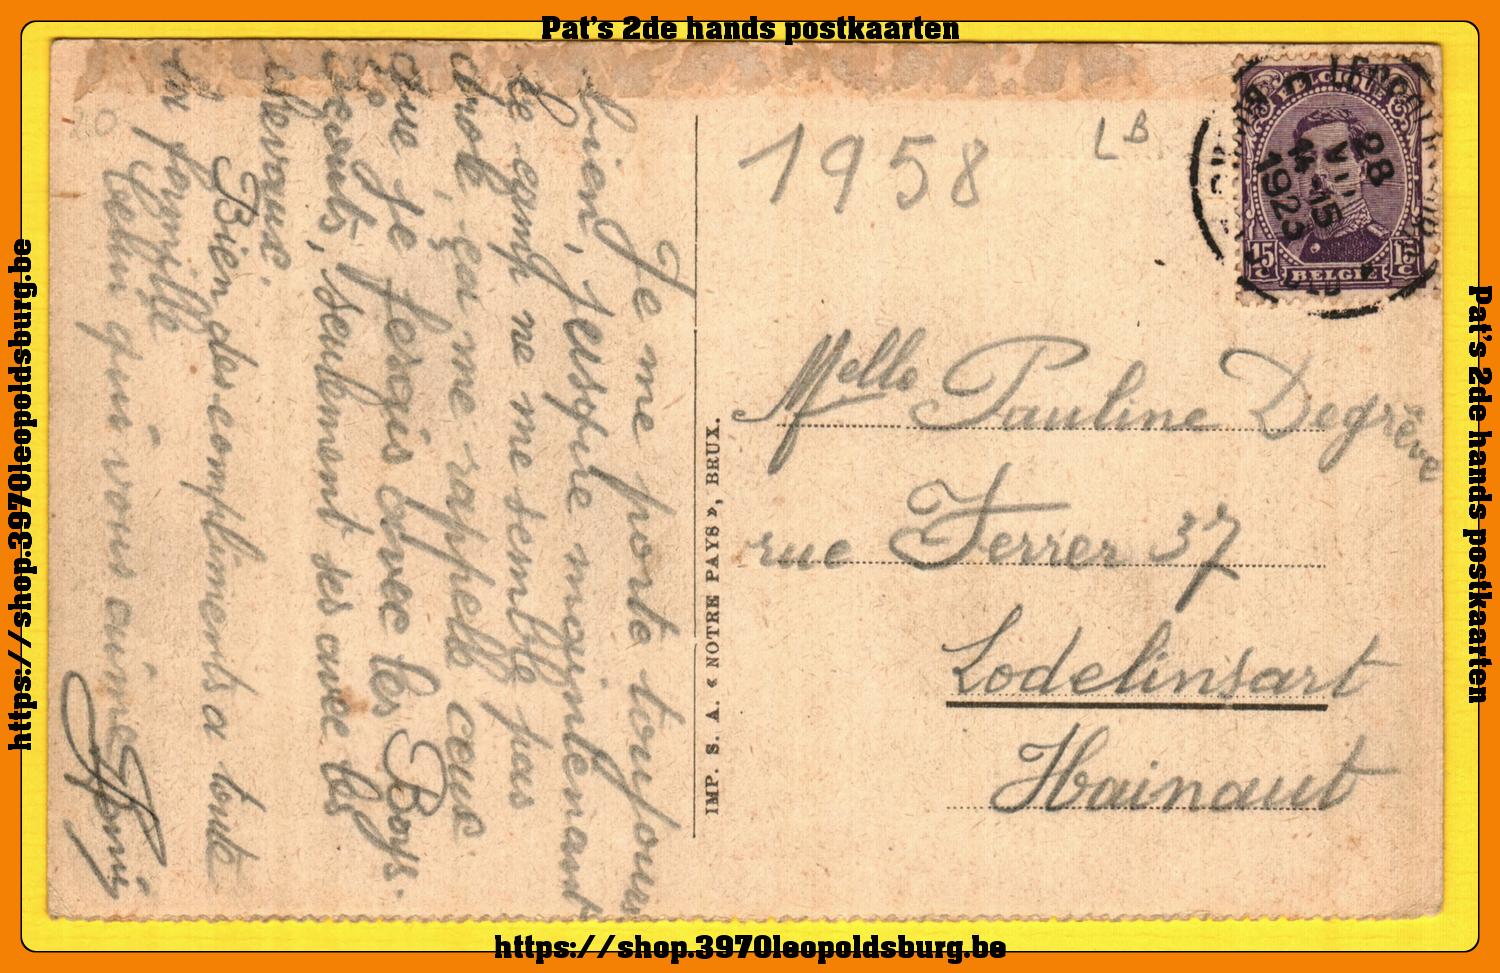 Pat's 2de hands postkaarten
1958
LB
BELGIQUE
15 C
15 C
BELGIË
28
VIII
14-15
1923
Melle Pauline Degrève
rue Ferrer 37
Lodelinsart
Hainaut
IMP. S. A. « NOTRE PAYS », BRUX.
Je me porte toujours
bien, j'espère maintenant
le camp ne me semble pas
drôle, ça me rappelle ceux
que je ferais avec les Boys-
Scouts, seulement ses avec les
chevaux.
Bien des compliments a toute
la famille
Celui qui vous aime
https://shop.3970leopoldsburg.be
Pat's 2de hands postkaarten
https://shop.3970leopoldsburg.be